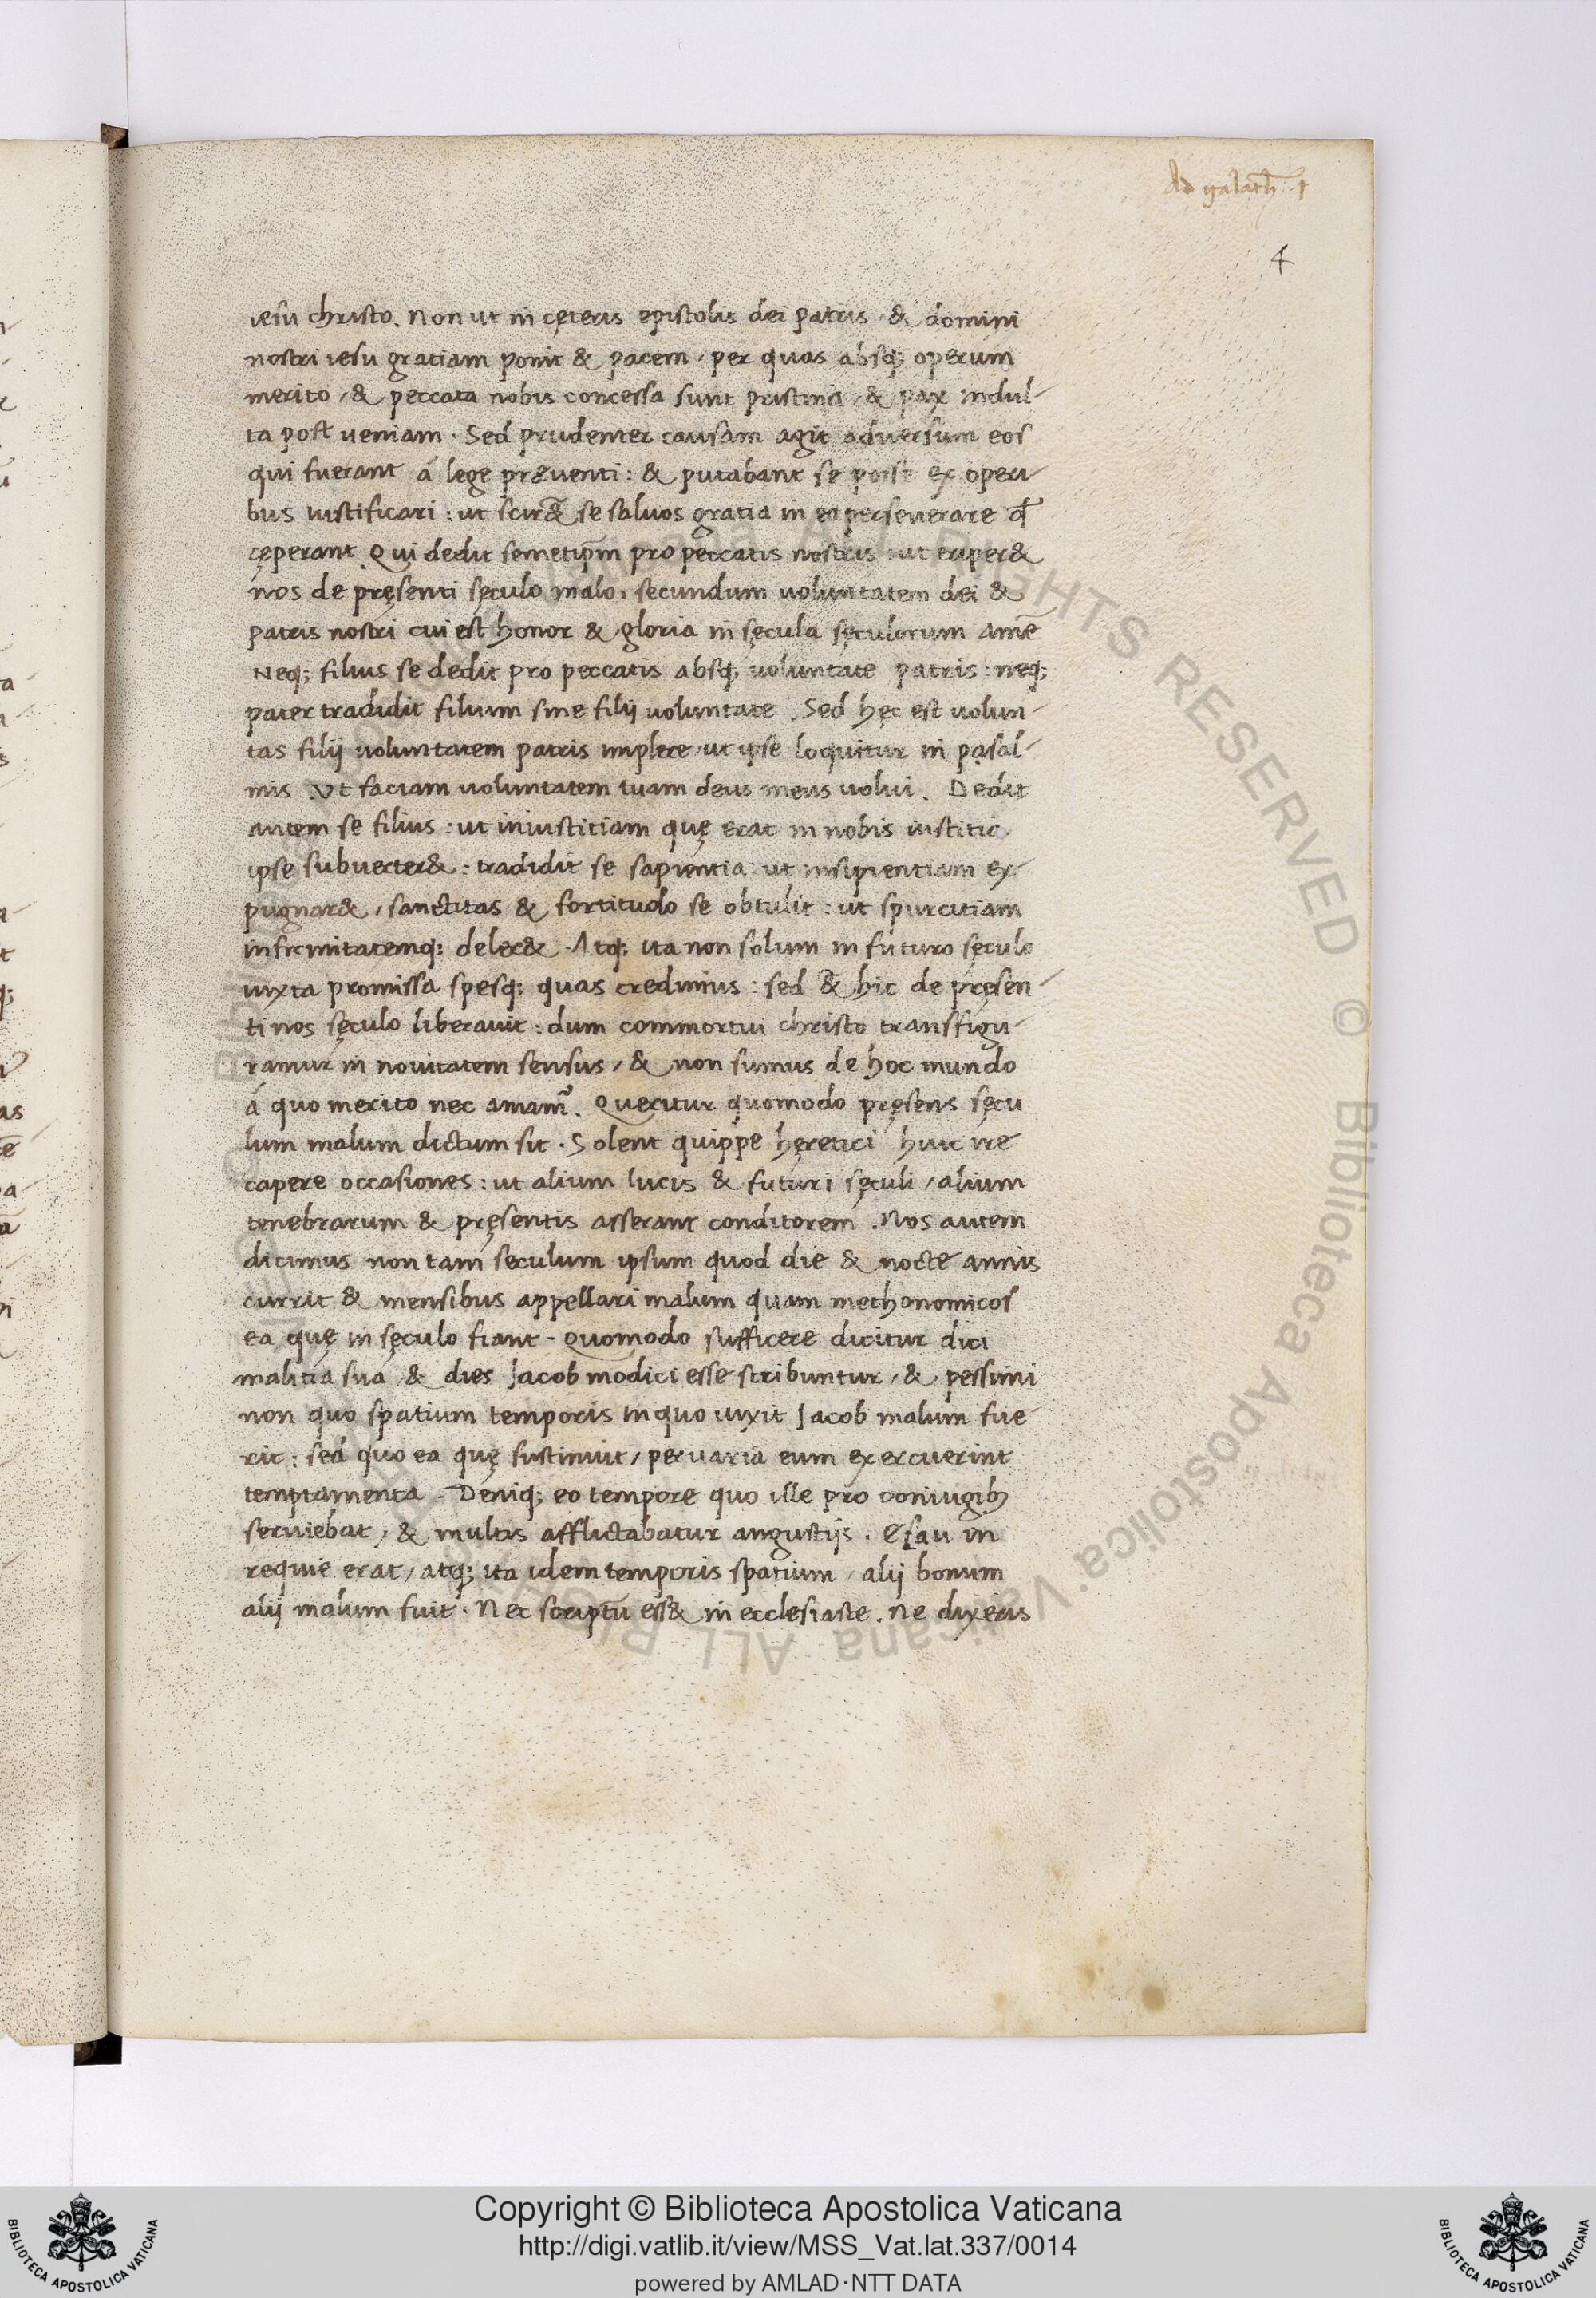 Ad galath. 1
4
iesu christo. Non ut in cęteris epistolis dei patris & domini
nostri iesu gratiam ponit & pacem, per quas absq; operum
merito, & peccata nobis concessa sunt pristina, & pax indul-
ta post ueniam. Sed prudenter causam agit aduersum eos
qui fuerant á lege pręuenti: & putabant se posse ex operi-
bus iustificari: ut scir& se saluos gratia in eo perseuerare q̄
cęperant. Qui dedit semetip̄m pro peccatis nostris ut eriper&
nos de pręsenti sęculo malo, secundum uoluntatem dei &
patris nostri cui est honor & gloria in sęcula sęculorum amē
Neq; filius se dedit pro peccatis absq; uoluntate patris: neq;
pater tradidit filium sine filij uoluntate. Sed hęc est uolun-
tas filij uoluntatem patris implere, ut ipse loquitur in pasal-
mis. Ut faciam uoluntatem tuam deus meus uolui. Dedit
autem se filius: ut iniustitiam quę erat in nobis iustitia
ipse subuerter&: tradidit se sapientia: ut insipientiam ex-
pugnar&, sanctitas & fortitudo se obtulit: ut spurcitiam
infirmitatemq; deler&. Atq; ita non solum in futuro sęculo
iuxta promissa spesq; quas credimus: sed &̄ hic de pręsen-
ti nos sęculo liberauit: dum commortui christo transfigu-
ramur in nouitatem sensus, & non sumus de hoc mundo
á quo merito nec amam̄. Queritur quomodo pręsens sęcu
lum malum dictum sit. Solent quippe hęretici hinc ire
capere occasiones: ut alium lucis & futuri sęculi, alium
tenebrarum & pręsentis asserant conditorem. Nos autem
dicimus non tam seculum ipsum quod die & nocte annis
currit & mensibus appellari malum quam methonomicos
ea quę in sęculo fiant. Quomodo sufficere dicitur dici
malitia sua & dies Jacob modici esse scribuntur, & pessimi
non quo spatium temporis in quo uixit Jacob malum fue
rit: sed quo ea quę sustinuit, per uaria eum exercuerint
temptamenta. Deniq; eo tempore quo ille pro coniugib;
seruiebat, & multis afflictabatur angustijs. Esau in
requie erat, atq; ita idem temporis spatium, alij bonum
alij malum fuit. Nec scriptū ess& in ecclesiaste. Ne dixeris
© Biblioteca Apostolica Vaticana ALL RIGHTS RESERVED
BIBLIOTECA APOSTOLICA VATICANA
Copyright © Biblioteca Apostolica Vaticana
http://digi.vatlib.it/view/MSS_Vat.lat.337/0014
powered by AMLAD·NTT DATA
BIBLIOTECA APOSTOLICA VATICANA